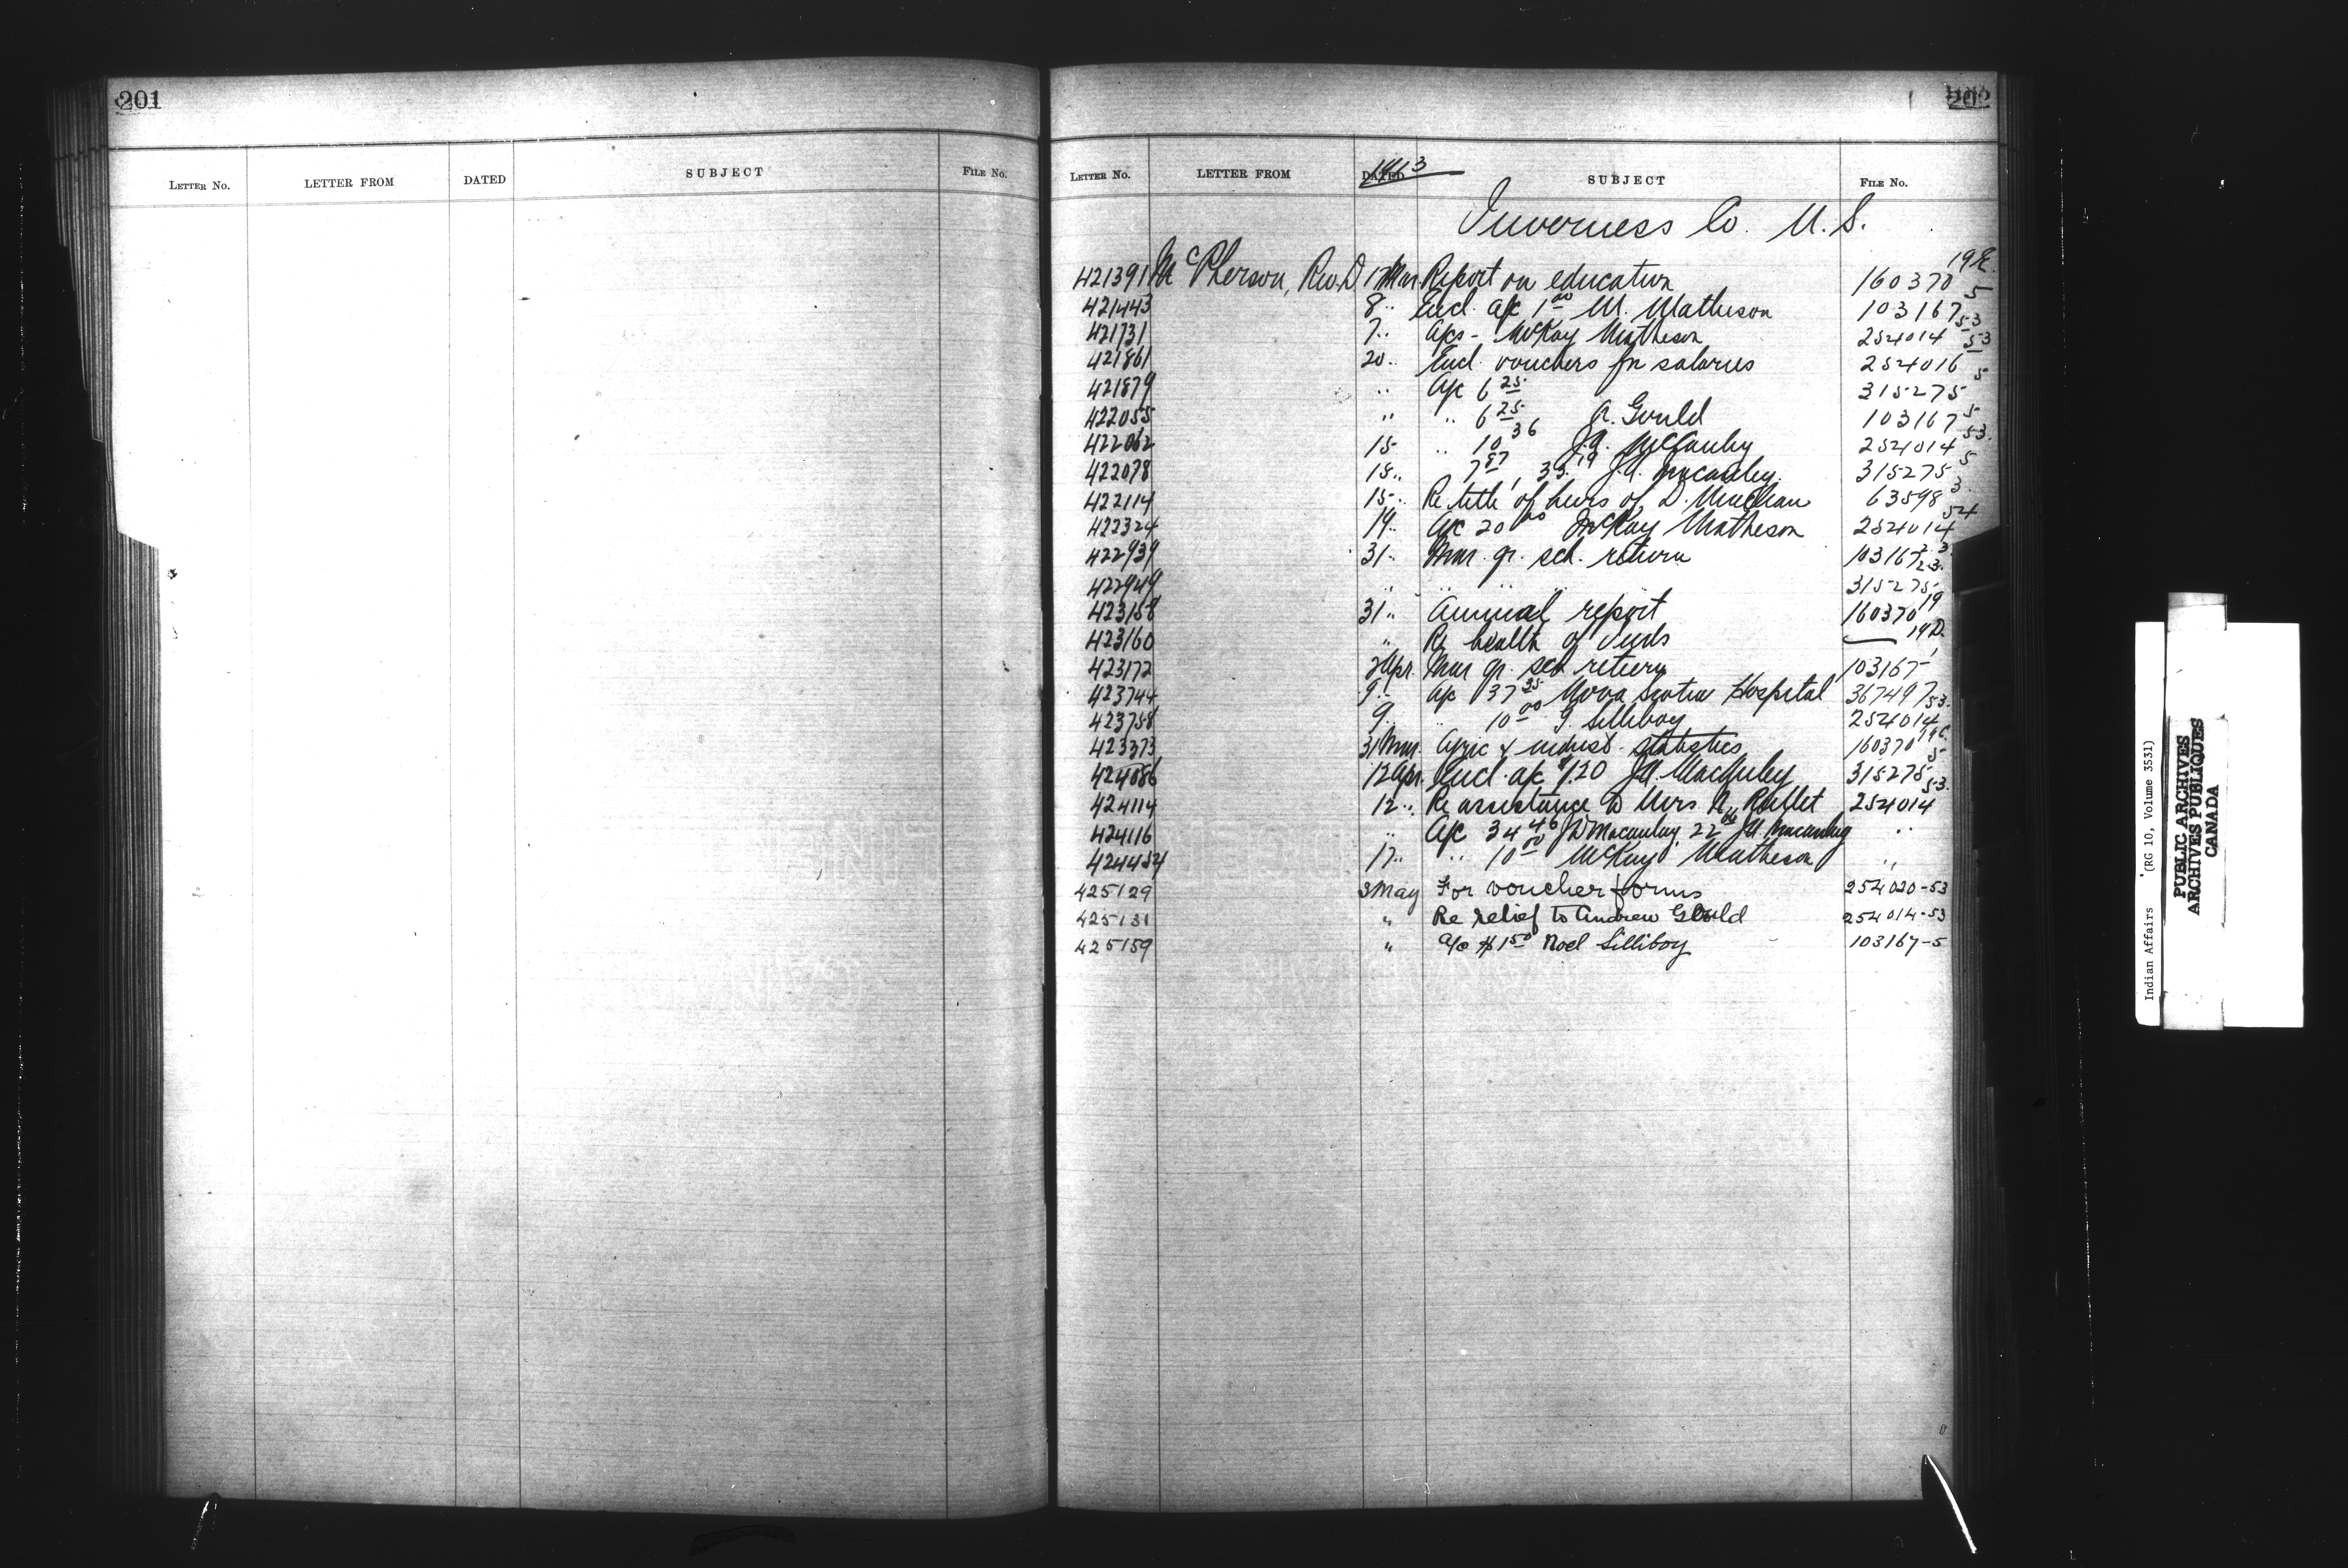 201
LETTER No. LETTER FROM DATED SUBJECT FILE No.
202
LETTER No. LETTER FROM DATED SUBJECT FILE No.
Inverness Co. N.S.
421391 McPherson, Rev. D. 17 Mar. Report on education 160370 19E.
421443 8 " Encl. a/c 1.00 M. Matheson 103167 5
421731 7 " a/cs - McKay Matheson 254014 53
421861 20 " Encl. vouchers for salaries 254016 53
421879 " a/c 6.25 315275 5
422055 " " 6.25 A. Gould 103167 5
422062 15 " 10.36 J.A. McCauley 254014 53.
422078 15 " 7.87, 33.19 J.A. Macauley. 315275 5
422114 15 " Re title of heirs of D. 63598 3.
422324 19 " a/c 20.00 McKay Matheson 254014 54
422939 31 " Mar. qr. sch. return 103167 23.
422949 " " " " 315275 23.
423158 31 " Annual report 160370 19
423160 " Re health of Inds — 19D.
423172 2 Apr. Mar qr. sch return 103167
423744 9 " a/c 37.35 Nova Scotia Hospital 367497
423758 9 " 10.00 G. Silliboy 254014 53.
423373 31 Mar. Agric & indust. statistics 160370 19C.
424086 12 Apr. Encl. a/c $1.20 J.A. MacAuley 315275 5
424114 12 " Re assistance to Mrs. N. 254014 53.
424116 " a/c 34.46 J.D Macaulay, 22 J.A. Macaulay "
424454 17 " " 10.00 McKay Matheson "
425129 3 May For voucher forms 254020-53
425131 " Re relief to Andrew Gould 254014-53
425159 " a/c $1.50 Noel Silliboy 103167-5
Indian Affairs (RG 10, Volume 3531)
PUBLIC ARCHIVES
ARCHIVES PUBLIQUES
CANADA